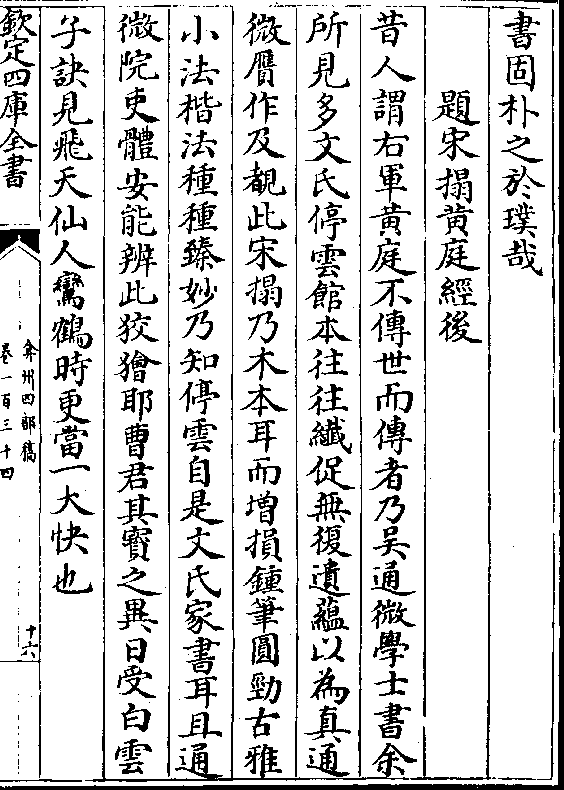 書固朴之於璞哉
題宋搨黄庭經後
昔人謂右軍黄庭不傳世而傳者乃吳通微學士書余
所見多文氏停雲館本往往纎促無復遺蘊以為真通
微贋作及覩此宋搨乃木本耳而增損鍾筆圓勁古雅
小法楷法種種臻妙乃知停雲自是文氏家書耳且通
微院吏體安能辨此狡獪耶曹君其寳之異日受白雲
子訣見飛天仙人鸞鶴時更當一大快也
欽定四庫全書
弇州四部稿
卷一百三十四
十六